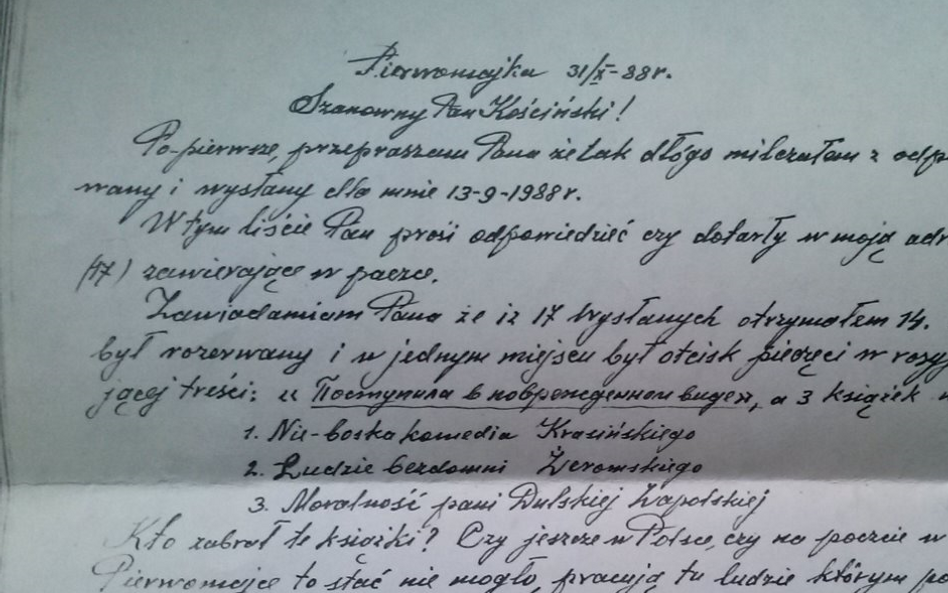 Pierwomajka 31/X-88r.
Szanowny Pan Kościński!
Po-pierwsze, przepraszam Pana że tak dłógo milczałem z odp
wany i wysłany dla mnie 13-9-1988r.
W tym liście Pan prosi odpowiedzieć czy dotarły w moją adr
(17) zawierające w paczce.
Zawiadamiam Pana że iz 17 wysłanych otrzymałem 14.
był rozerwany i w jednym miejscu był otcisk pieczęci w rosyj
jącej treści: "Поступила в поврежденном виде", a 3 książek
1. Nie-boska komedia Krasińskiego
2. Ludzie bezdomni Żeromskiego
3. Moralność pani Dulskiej Zapolskiej
Kto zabrał te książki? Czy jeszcze w Polsce, czy na poczcie w
Pierwomajce to stać nie mogło, pracują tu ludzie którym po